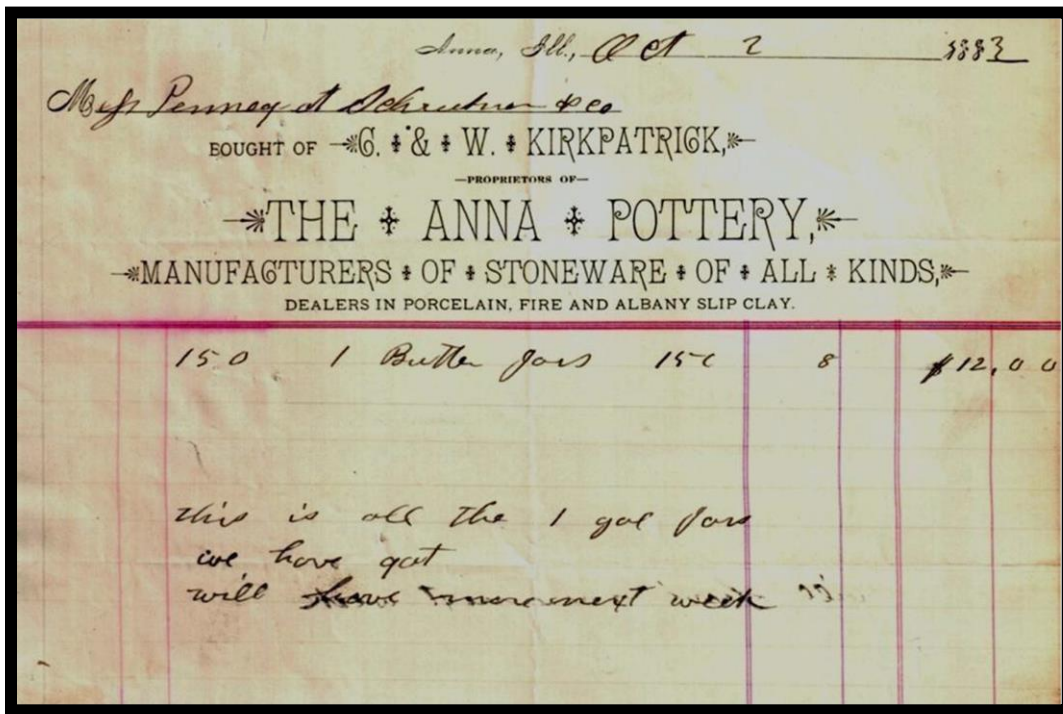 Anna, Ill., Oct 2 1883
Mess
BOUGHT OF G. & W. KIRKPATRICK,
—PROPRIETORS OF—
THE ANNA POTTERY,
MANUFACTURERS OF STONEWARE OF ALL KINDS,
DEALERS IN PORCELAIN, FIRE AND ALBANY SLIP CLAY.
150 1 Butter Jars 150 8 $12,00
this is all the 1 gal Jars
we have got
will have more next week